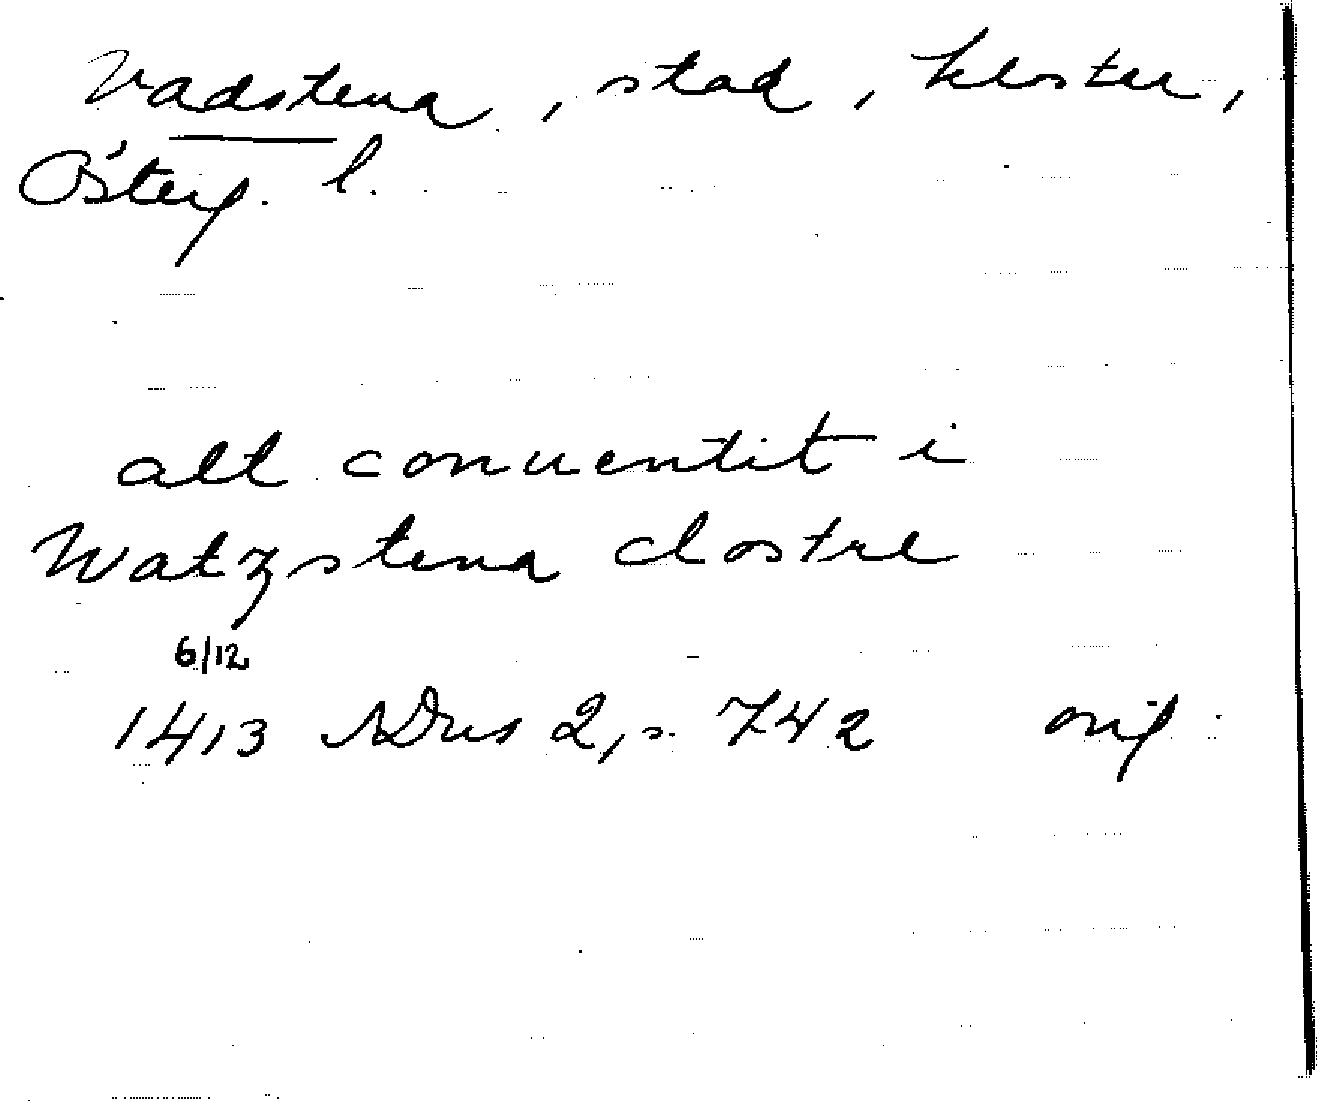 Vadstena, stad, kloster,
Österg. l.
alt conuentit i
Watzstena clostre
6/12
1413 SDns 2, s. 742 orig